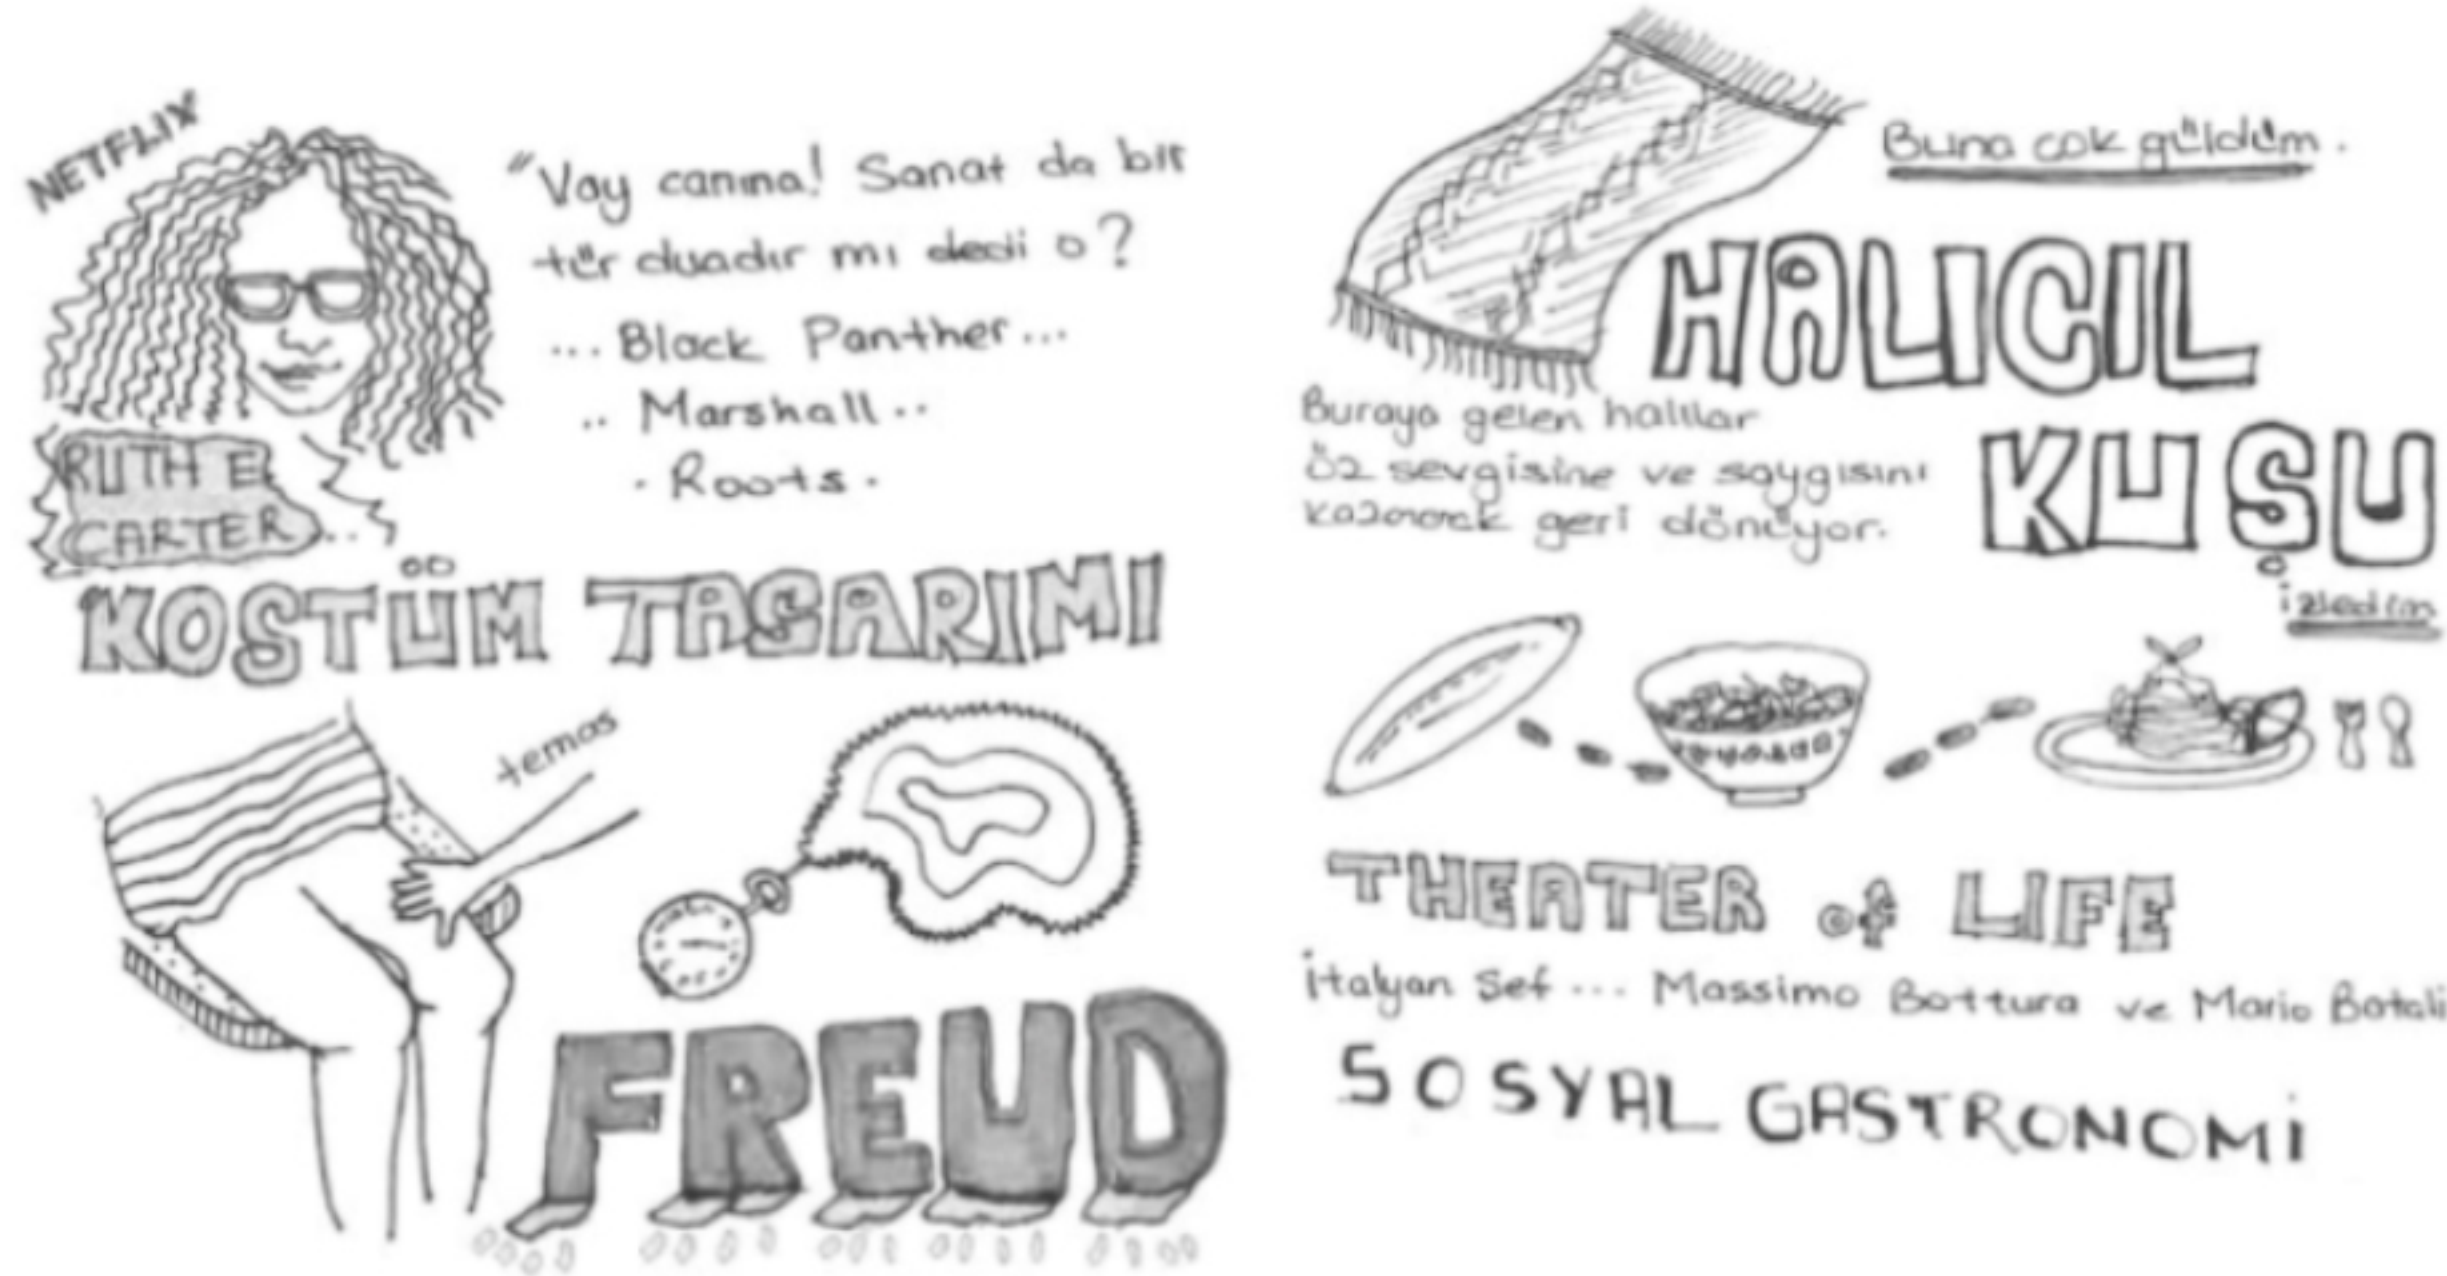 NETFLIX
"Vay canına! Sanat da bir
tür duadır mı dedi o?
... Black Panther ...
.. Marshall ..
. Roots .
RUTH E.
CARTER...
KOSTÜM TASARIMI
temas
FREUD
Buna çok güldüm.
HALICIL
KUŞU
izledim
Buraya gelen halılar
öz sevgisine ve saygısını
kazanarak geri dönüyor.
THEATER of LIFE
İtalyan Şef ... Massimo Bottura ve Mario Batali
SOSYAL GASTRONOMİ